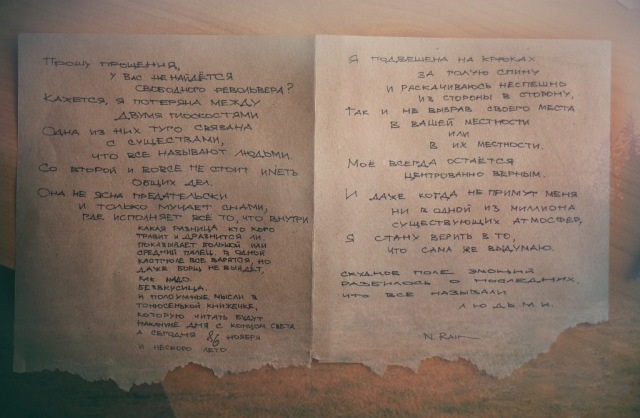 Прошу прощения,
у вас не найдётся
свободного револьвера?
Кажется, я потеряна между
двумя плоскостями
Одна из них туго связана
с существами,
что все называют людьми.
Со второй и вовсе не стоит иметь
общих дел.
Она не ясна предательски
и только мучает снами,
где исполняет всё то, что внутри
какая разница кто кого
травит и дразнится ли,
показывает большой или
средний палец. В одной
кастрюле все варятся, но
даже борщ не выйдет,
как надо.
Безвкусица.
И полоумные мысли в
тонюсенькой книжечке,
которую читать будут
накануне дня с концом света
а сегодня 86 ноября
и нескоро лето
Я подвешена на крюках
за голую спину
и раскачиваюсь неспешно
из стороны в сторону,
Так и не выбрав своего места
в вашей местности
или
в их местности.
Моё всегда остаётся
центрованно верным.
И даже когда не примут меня
ни в одной из миллиона
существующих атмосфер,
Я стану верить в то,
что сама же выдумаю.
Скудное поле эмоций
разбилось о последних,
что все называли
людьми.
N. Rain